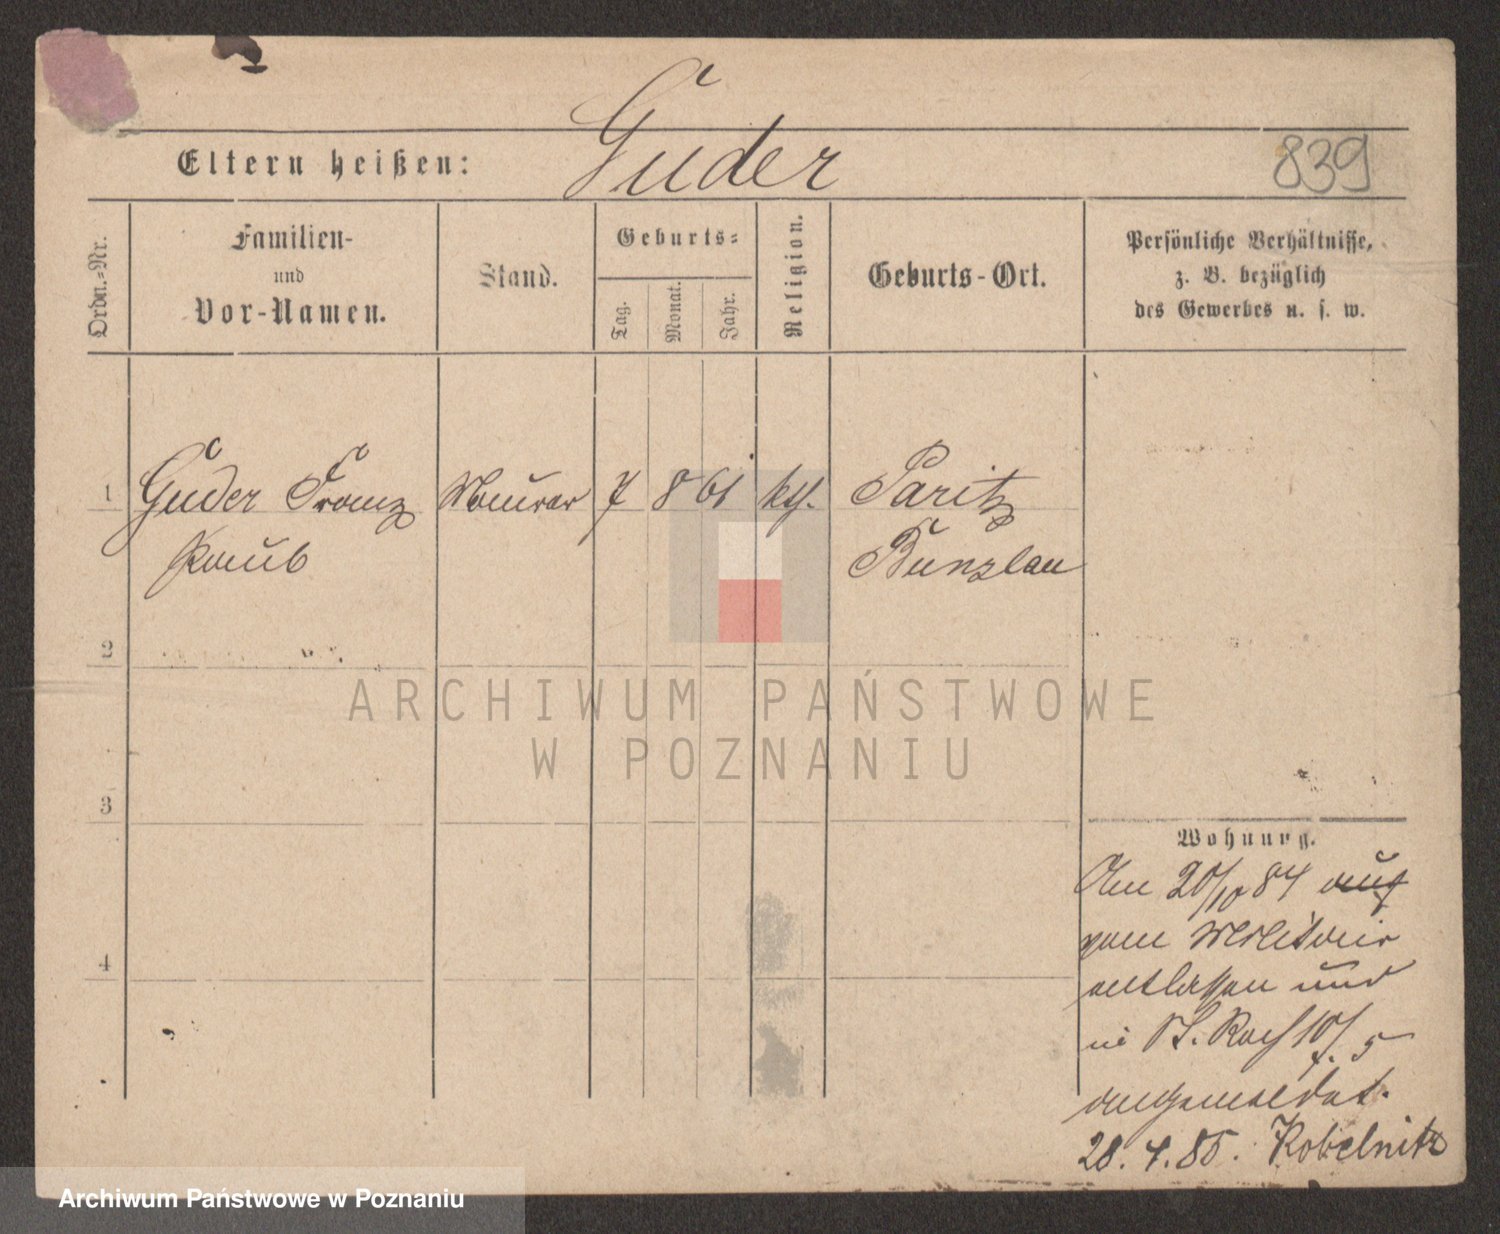 Guder
Eltern heißen:
839
Ordn.-Nr.
Familien-
und
Vor-Namen.
Stand.
Geburts-
Tag.
Monat.
Jahr.
Religion.
Geburts-Ort.
Persönliche Verhältnisse,
z. B. bezüglich
des Gewerbes u. s. w.
1 Guder Franz Maurer 7 8 61 kth. Paritz
Bunzlau
2
3
4
Wohnung.
Am 20/10 84
vom Militair
entlassen und
in St. Roch 10/
angemeldet.
28. 4. 85. Kobelnitz
ARCHIWUM PAŃSTWOWE
W POZNANIU
Archiwum Państwowe w Poznaniu